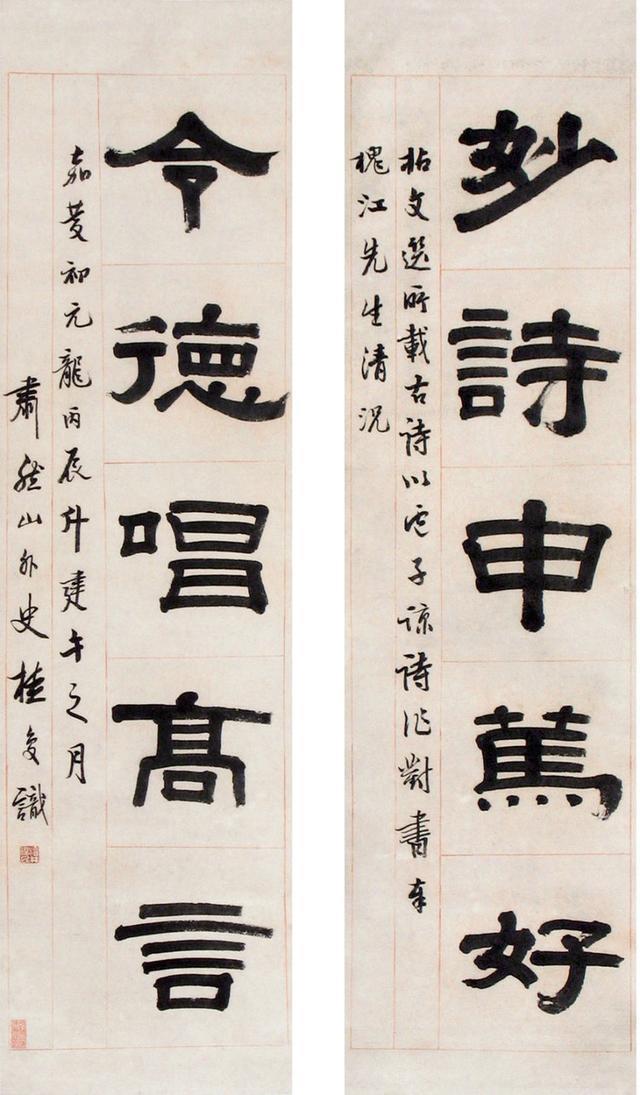 妙詩申篤好
拈文選所載古詩以盧子諒詩作對書奉
槐江先生清況
令德唱髙言
嘉慶初元龍丙辰斗建午之月
肅然山外史桂馥識